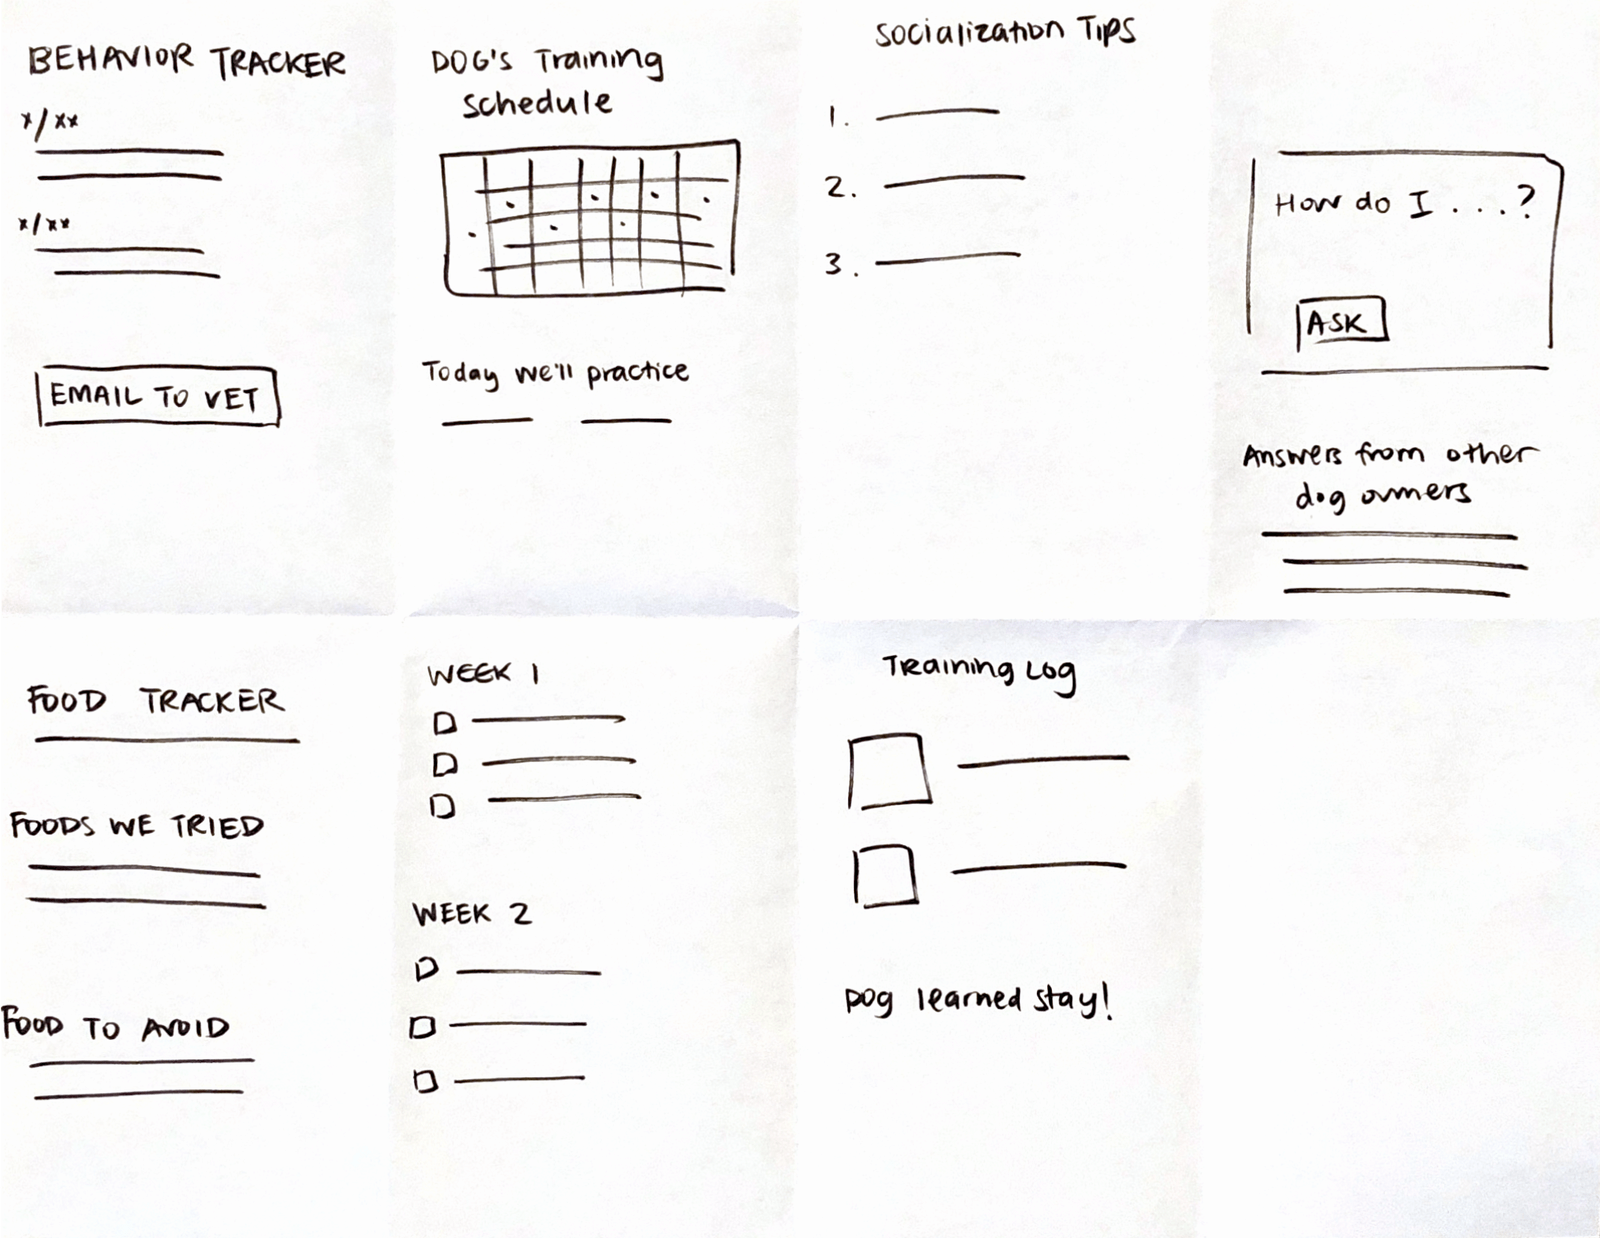 BEHAVIOR TRACKER
x/xx
x/xx
EMAIL TO VET
DOG'S Training
Schedule
Today we'll practice
Socialization Tips
1.
2.
3.
How do I ...?
ASK
Answers from other
dog owners
FOOD TRACKER
FOODS WE TRIED
FOOD TO AVOID
WEEK 1
WEEK 2
Training Log
Dog learned stay!